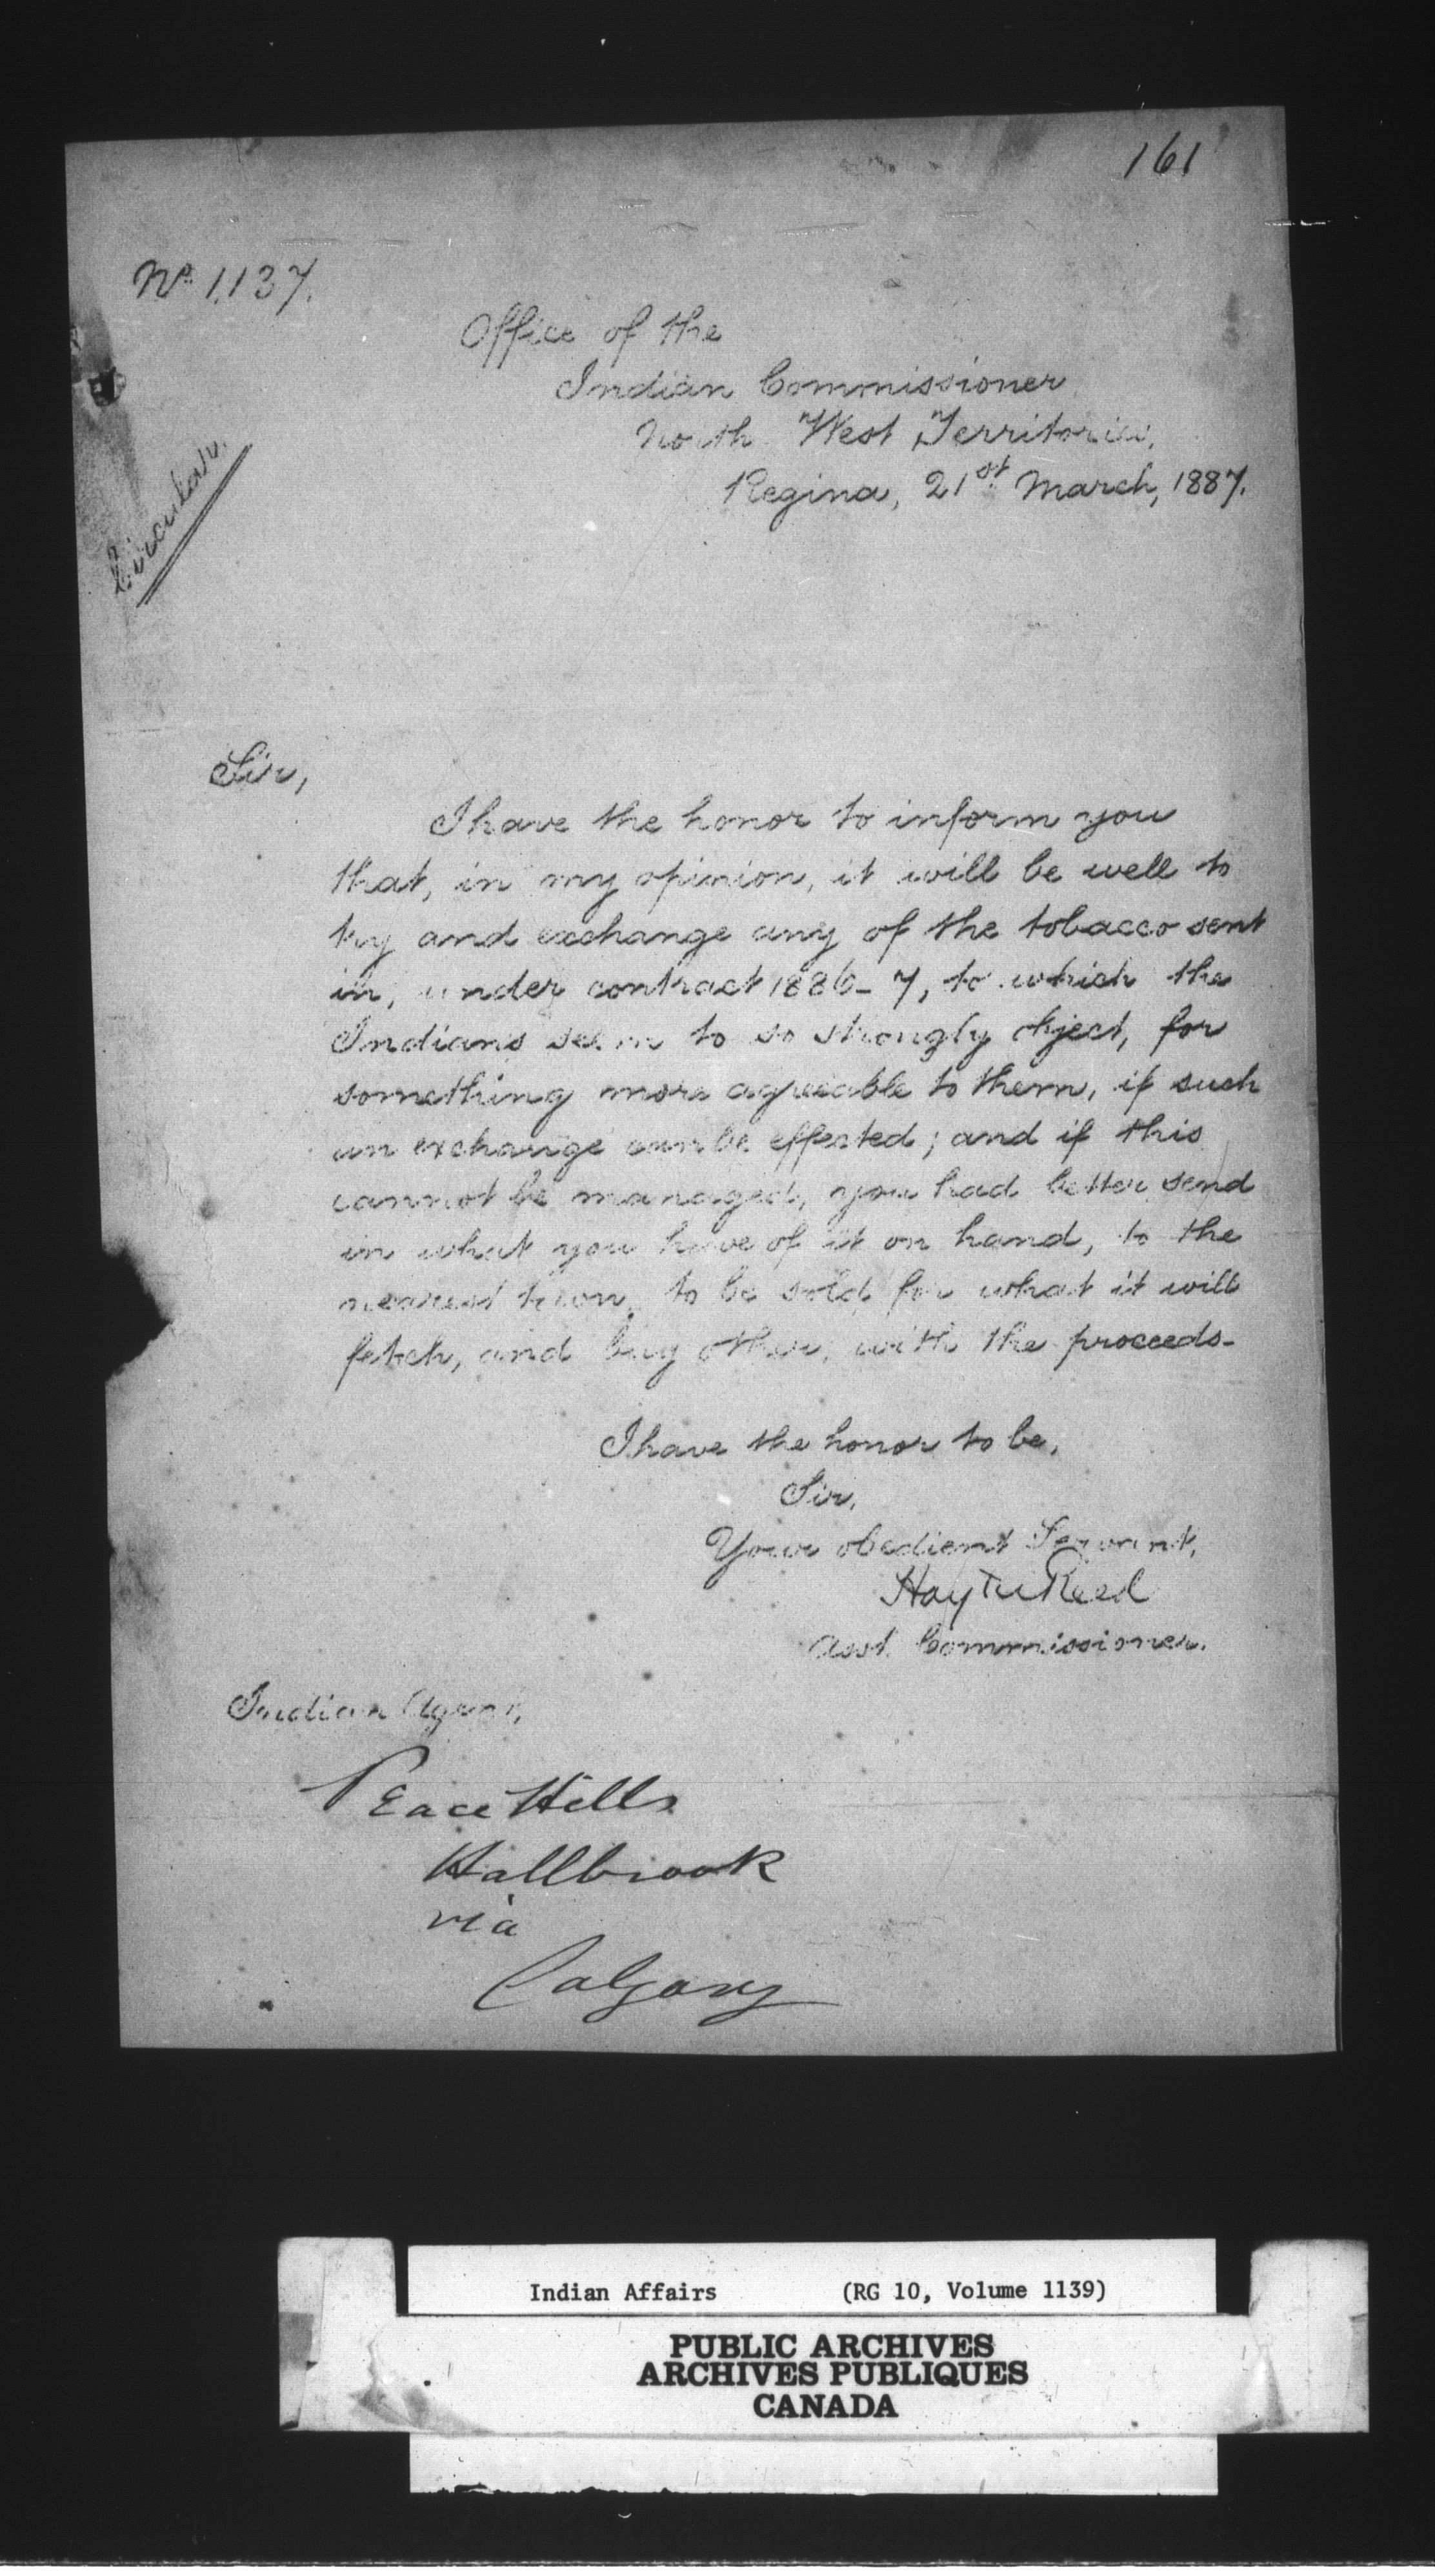 161
No. 1137.
Office of the
Indian Commissioner
North West Territories,
Regina, 21st March, 1887.
Circular.
Sir,
I have the honor to inform you
that, in my opinion, it will be well to
try and exchange any of the tobacco sent
in, under contract 1886-7, to which the
Indians seem to so strongly object, for
something more agreeable to them, if such
an exchange can be effected; and if this
cannot be managed, you had better send
in what you have of it on hand, to the
nearest town, to be sold for what it will
fetch, and buy other, with the proceeds-
I have the honor to be,
Sir,
Your obedient Servant,
Hayter Reed
Asst. Commissioner.
Indian Agent,
Peace Hills
Hallbrook
via
Calgary
Indian Affairs (RG 10, Volume 1139)
PUBLIC ARCHIVES
ARCHIVES PUBLIQUES
CANADA